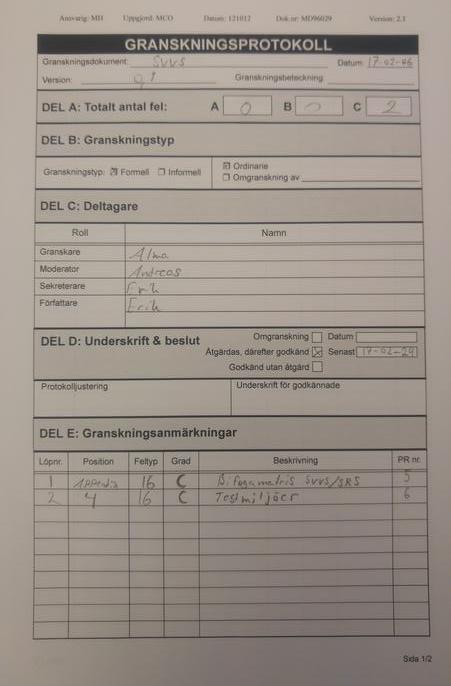 Ansvarig: MH Uppgjord: MCO Datum: 121012 Dok.nr: MD96029 Version: 2.1
GRANSKNINGSPROTOKOLL
Granskningsdokument: SVVS Datum: 17-02-06
Version: 0.1 Granskningsbeteckning:
DEL A: Totalt antal fel: A 0 B 0 C 2
DEL B: Granskningstyp
Granskningstyp: ☒ Formell ☐ Informell ☒ Ordinarie
☐ Omgranskning av
DEL C: Deltagare
Roll Namn
Granskare Alma
Moderator Andreas
Sekreterare Erik
Författare Erik
DEL D: Underskrift & beslut Omgranskning ☐ Datum
Åtgärdas, därefter godkänd ☒ Senast 17-02-24
Godkänd utan åtgärd ☐
Protokolljustering Underskrift för godkännade
DEL E: Granskningsanmärkningar
Löpnr. Position Feltyp Grad Beskrivning PR nr.
1 Appendix 16 C Bifoga matris SVVS/SRS 5
2 4 16 C Testmiljöer 6
Sida 1/2